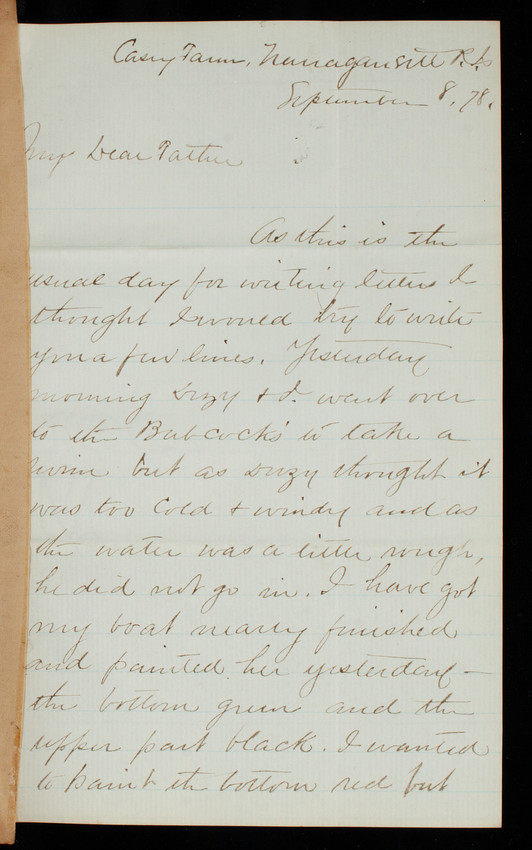 Casey Farm, Narragansett R.Is
September 8, 78.
My Dear Father
As this is the
usual day for writing letters I
thought I would try to write
you a few lines. Yesterday
morning Dezy & I. went over
to the Babcock's to take a
swim but as Dezy thought it
was too cold & windy and as
the water was a little rough,
he did not go in. I have got
my boat nearly finished
and painted her yesterday -
the bottom green and the
upper part black. I wanted
to paint the bottom red but